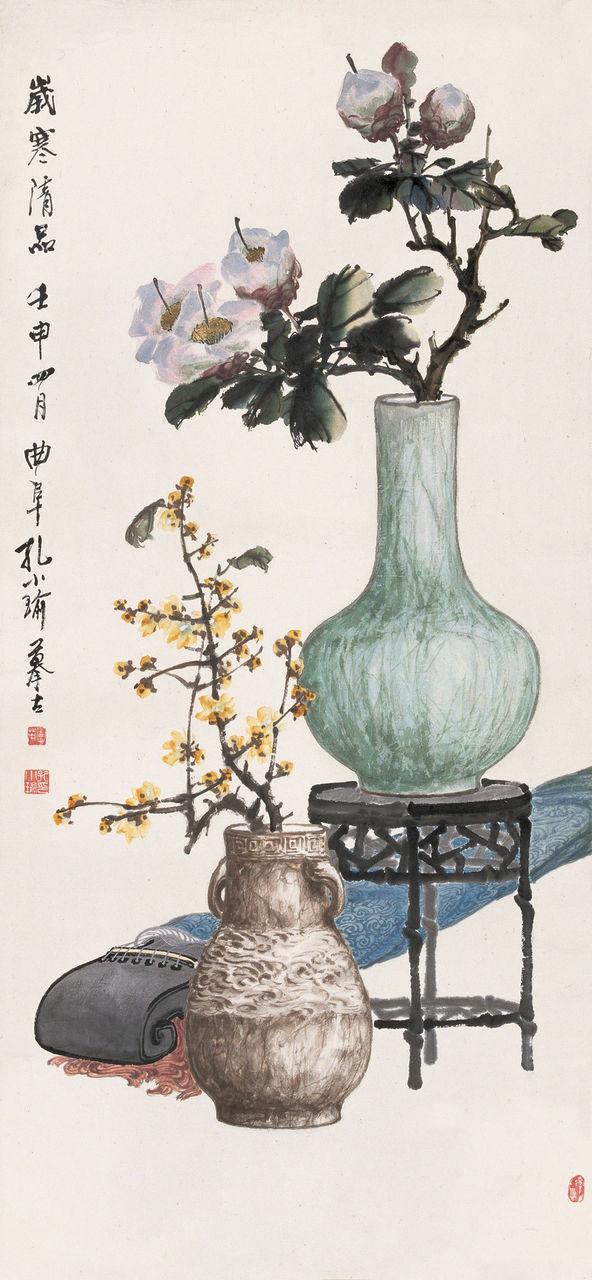 歲寒清品 壬申四月 曲阜孔小瑜摹古